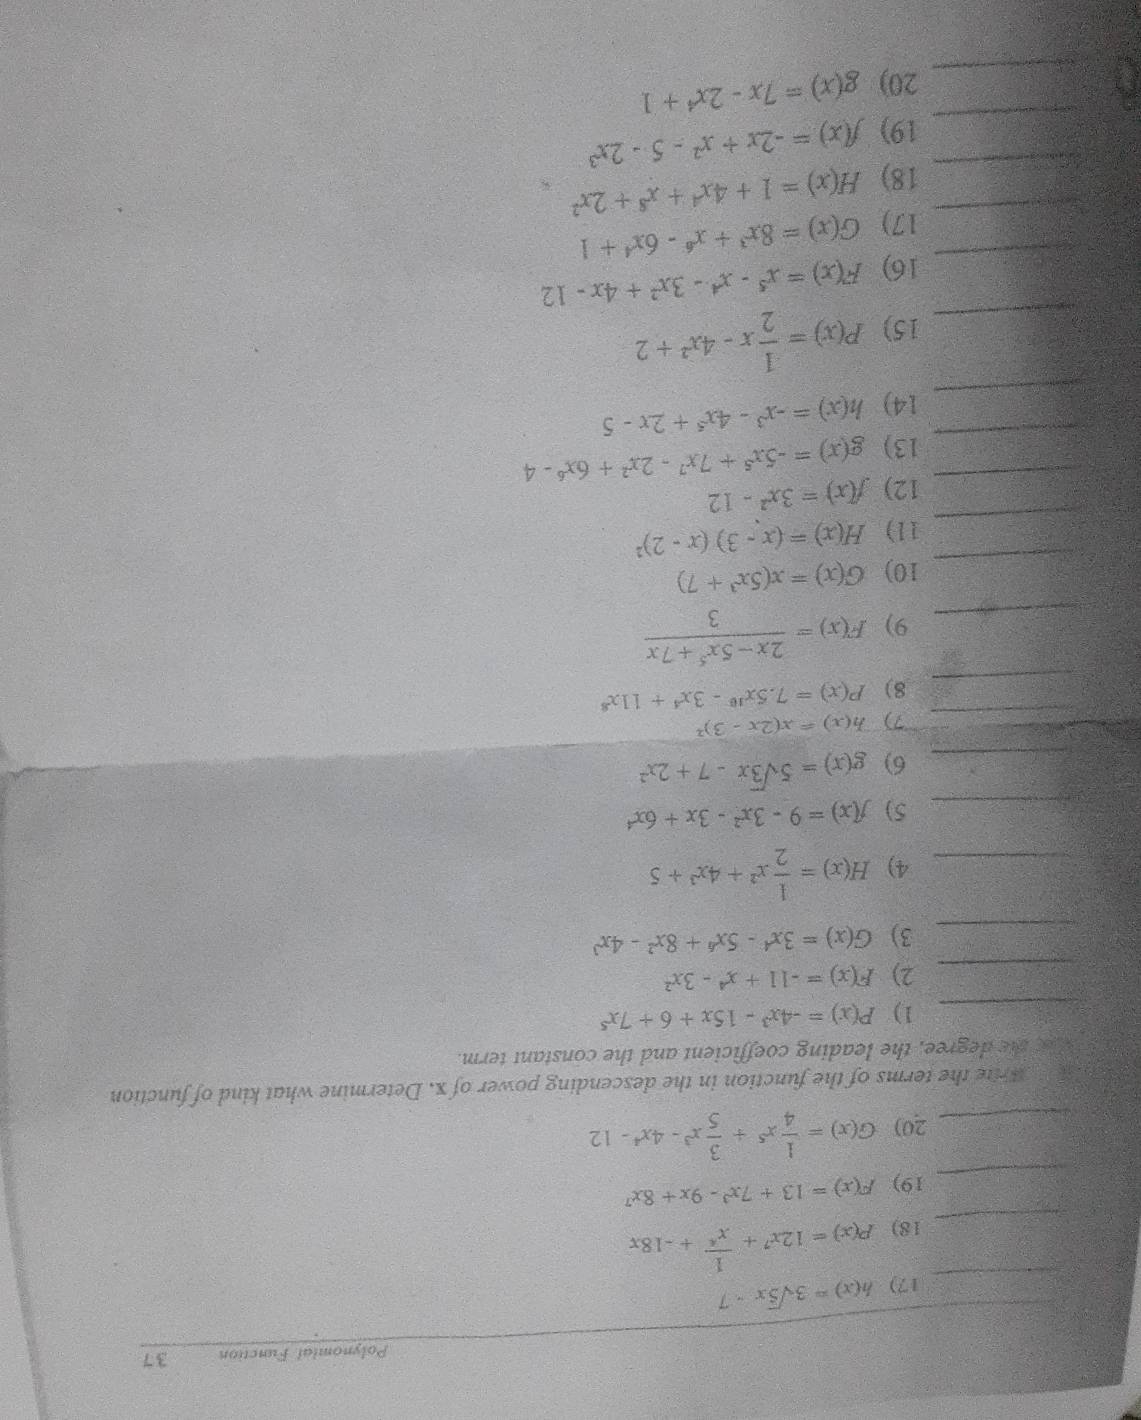 Polynomial Function 37
17) h(x) = 3√5x - 7
18) P(x) = 12x⁷ + 1/x⁴ + -18x
19) F(x) = 13 + 7x³ - 9x + 8x⁷
20) G(x) = 1/4 x⁵ + 3/5 x³ - 4x⁴ - 12
Write the terms of the function in the descending power of x. Determine what kind of function
the degree, the leading coefficient and the constant term.
1) P(x) = -4x³ - 15x + 6 + 7x⁵
2) F(x) = -11 + x⁴ - 3x²
3) G(x) = 3x⁴ - 5x⁶ + 8x² - 4x³
4) H(x) = 1/2 x² + 4x³ + 5
5) f(x) = 9 - 3x² - 3x + 6x⁴
6) g(x) = 5√3x - 7 + 2x²
7) h(x) = x(2x - 3)²
8) P(x) = 7.5x¹⁶ - 3x⁴ + 11x⁸
9) F(x) = 2x - 5x⁵ + 7x / 3
10) G(x) = x(5x³ + 7)
11) H(x) = (x - 3) (x - 2)²
12) f(x) = 3x² - 12
13) g(x) = -5x⁵ + 7x⁷ - 2x² + 6x⁶ - 4
14) h(x) = -x³ - 4x⁵ + 2x - 5
15) P(x) = 1/2 x - 4x² + 2
16) F(x) = x⁵ - x⁴ - 3x² + 4x - 12
17) G(x) = 8x³ + x⁶ - 6x⁴ + 1
18) H(x) = 1 + 4x⁴ + x⁸ + 2x²
19) f(x) = -2x + x² - 5 - 2x³
20) g(x) = 7x - 2x⁴ + 1